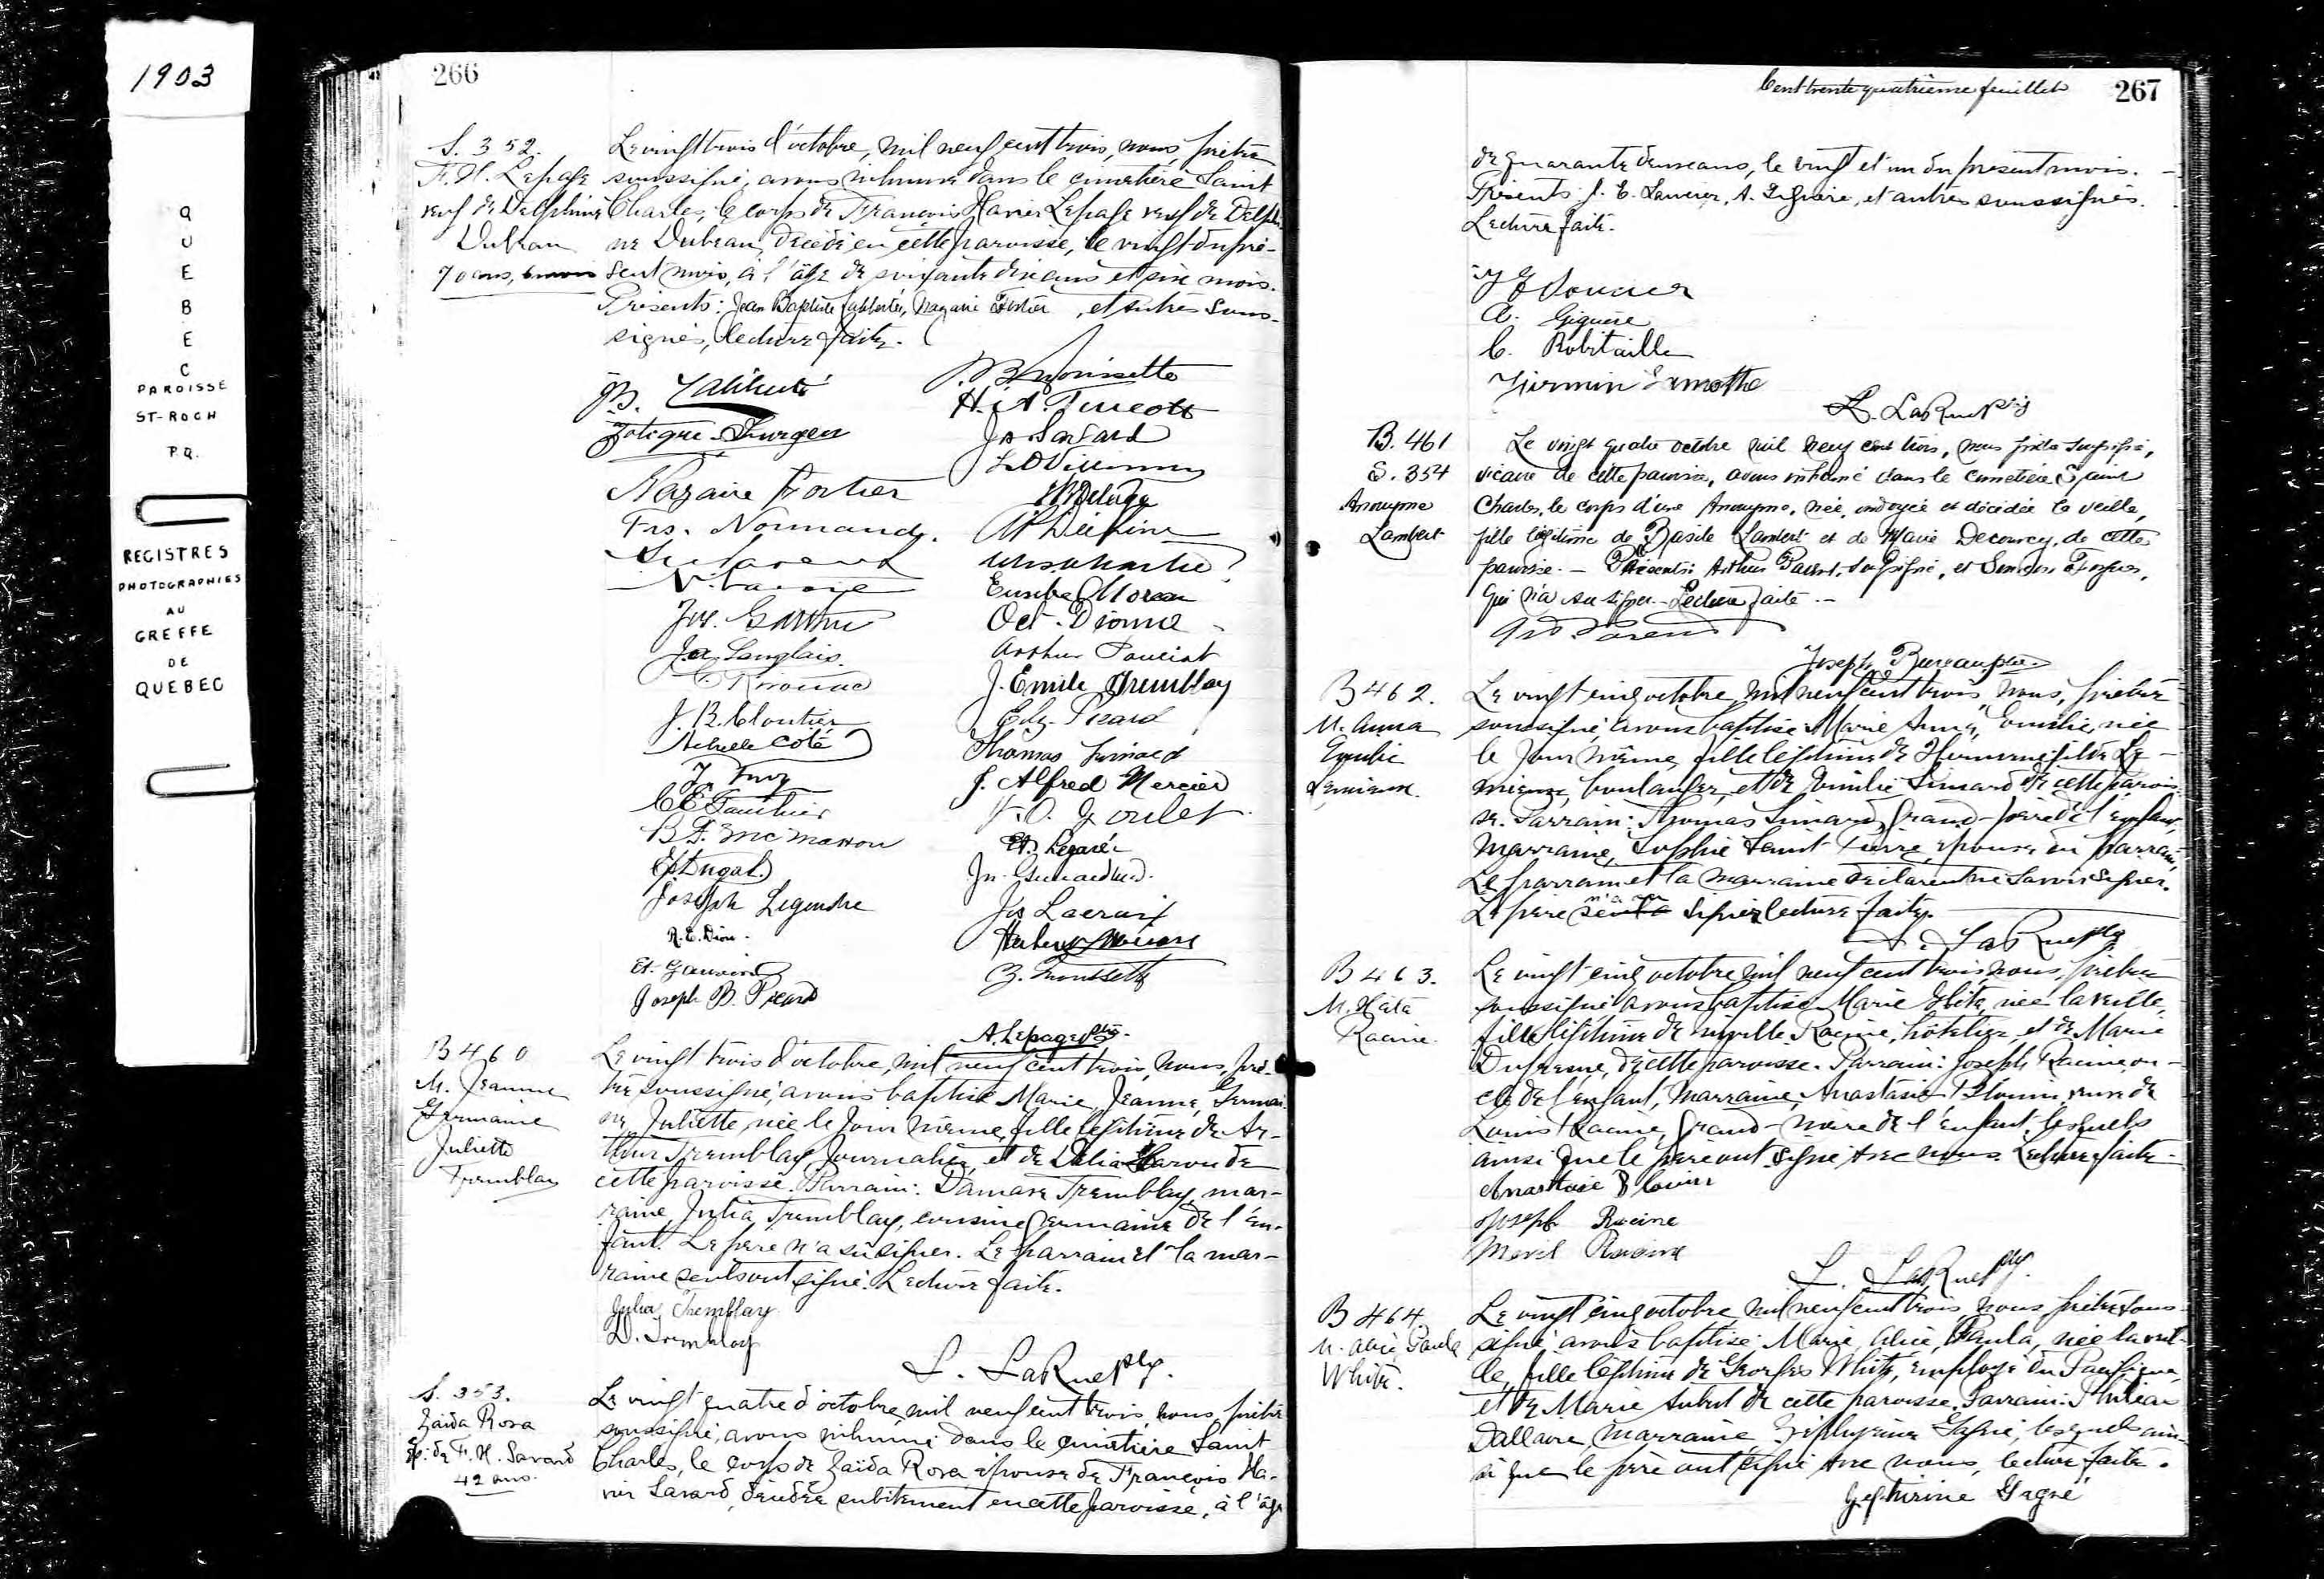 1903
QUEBEC
PAROISSE
ST-ROCH
P.Q.
REGISTRES
PHOTOGRAPHIES
AU
GREFFE
DE
QUEBEC
266
S. 352.
F. X. Lepage
veuf de Delphine
Dubeau
70 ans, 6 mois
Le vingt trois d'octobre, mil neuf cent trois, nous, prêtre
soussigné, avons inhumé dans le cimetière Saint
Charles, le corps de François Xavier Lepage veuf de Delphi-
ne Dubeau, décédé en cette paroisse, le vingt du pré-
sent mois, à l'âge de soixante dix ans et six mois.
Présents: Jean Baptiste Laliberté, Nazaire Fortier, et autres sous-
signés, lecture faite.
J.B. Laliberté
Zotique Turgeon
Nazaire Fortier
Frs. Normand.
Jos.
Ja Langlais
C. Kirouac
J. B. Cloutier
Achille Coté
C E Gauthier
B. F. McMahon
Joseph Legendre
R. E. Dion
Et. Gauvin
Joseph B. Picard
J. B. Morissette
H. A. Turcott
Js Savard
Eusebe Moreau
Oct. Dionne
Arthur
J. Emile Tremblay
Edg. Picard
Thomas
J. Alfred Mercier
F. O. Goulet
Et. Legaré
Jos Lacroix
A. Lepage ptre.
B 460
M. Jeanne
Germaine
Juliette
Tremblay
Le vingt trois d'octobre, mil neuf cent trois, nous, prê-
tre soussigné, avons baptisé Marie, Jeanne, Germai-
ne, Juliette, née le jour même, fille légitime de Ar-
thur Tremblay, journalier, et de Délia Caron de
cette paroisse. Parrain: Damase Tremblay, mar-
raine Julia Tremblay, cousine germaine de l'en-
fant. Le père n'a su signer. Le parrain et la mar-
raine seuls ont signé. Lecture faite.
Julia Tremblay
D. Tremblay
L. LaRue ptre.
S. 353.
Zaïda Rosa
ép: de F. X. Savard
42 ans.
Le vingt quatre d'octobre, mil neuf cent trois, nous, prêtre
soussigné, avons inhumé dans le cimetière Saint
Charles, le corps de Zaïda Rosa épouse de François Xa-
vier Savard, décédée subitement en cette paroisse, à l'âge
Cent trente quatrième feuillet
267
de quarante deux ans, le vingt et un du présent mois.
Présents: J. E. A. Giguère, et autres soussignés.
Lecture faite.
A. Giguère
C. Robitaille
Firmin Lamothe
L. LaRue ptre
B. 461
S. 354
Anonyme
Lambert
Le vingt quatre octobre mil neuf cent trois, nous prêtre soussigné,
vicaire de cette paroisse, avons inhumé dans le cimetière Saint
Charles, le corps d'une Anonyme, née, ondoyée et décédée la veille,
fille légitime de Basile Lambert et de Marie Decourcy, de cette
paroisse. - Présents: Arthur Parent, soussigné, et
qui n'a su signer. - Lecture faite. -
Art Parent
Joseph Bureau ptre.
B 462.
M. Anna
Emilie
Lemieux.
Le vingt cinq octobre, mil neuf cent trois, nous, prêtre
soussigné, avons baptisé Marie, Anna, Emilie, née
le jour même, fille légitime de Herménégilde Le-
mieux, boulanger, et de Emilie Simard de cette parois-
se. Parrain: Thomas Simard, grand-père de l'enfant,
Marraine, Sophie Saint Pierre, épouse du parrain,
Le parrain et la marraine déclarent ne savoir signer.
Le père n'a su signer, lecture faite.
L. LaRue ptre
B 463.
M. Hata
Racine.
Le vingt cinq octobre, mil neuf cent trois, nous, prêtre
soussigné avons baptisé Marie née la veille,
fille légitime de Racine, hôtelier, et de Marie
Dufresne, de cette paroisse. Parrain: Joseph Racine, on-
cle de l'enfant, marraine, Anastasie Blouin, veuve de
Louis Racine, grand-mère de l'enfant, lesquels
ainsi que le père ont signé avec nous. Lecture faite.
Anastasie Blouin
Joseph Racine
Racine
L. LaRue ptre.
B 464.
M. Alice Paula
White.
Le vingt cinq octobre, mil neuf cent trois, nous prêtre sous-
signé, avons baptisé Marie, Alice, Paula, née la veil-
le, fille légitime de Georges White, employé du Pacifique,
et de Marie Aubut de cette paroisse. Parrain: Philéas
Dallaire, marraine, Zéphyrine Gagné, lesquels ain-
si que le père ont signé avec nous, lecture faite.
Zephirine Gagné